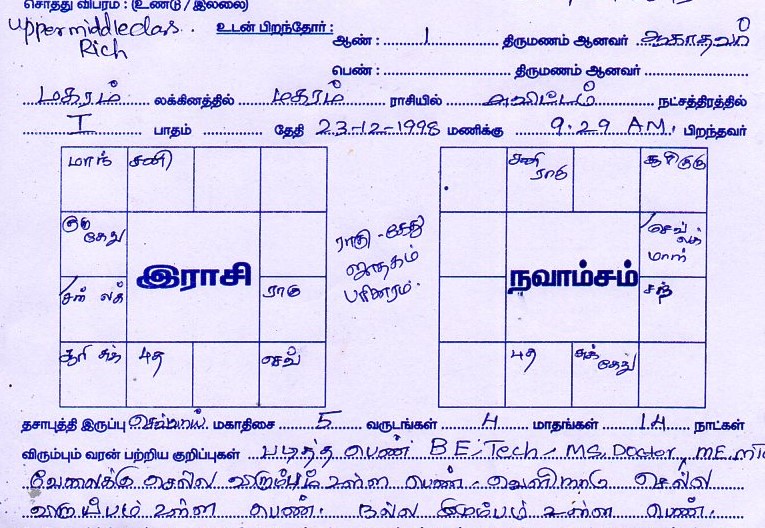 சொத்து விபரம் : (உண்டு / இல்லை)
Upper middle class. உடன் பிறந்தோர் :
Rich
ஆண் : 1 திருமணம் ஆனவர் ஆகாதவர் 0
பெண் : திருமணம் ஆனவர்
மகரம் லக்கினத்தில் மகரம் ராசியில் அவிட்டம் நட்சத்திரத்தில்
I பாதம் தேதி 23-12-1998 மணிக்கு 9.29 AM. பிறந்தவர்
மாந் சனி
குரு கேது
சந் லக் ராகு
சூரி சுக் புத செவ்
இராசி
ராகு - கேது
ஜாதகம்
பரிகாரம்.
சனி ராகு சூரி குரு
செவ் லக் மாந்
சந்
புத சுக் கேது
நவாம்சம்
தசாபுத்தி இருப்பு செவ்வாய் மகாதிசை 5 வருடங்கள் 4 மாதங்கள் 14 நாட்கள்
விரும்பும் வரன் பற்றிய குறிப்புகள் படித்த பெண் B.E, Tech, MS, Doctor, ME,
வேலைக்கு செல்ல விருப்பம் உள்ள பெண். வெளிநாடு செல்ல
விருப்பம் உள்ள பெண். நல்ல உள்ள பெண்.